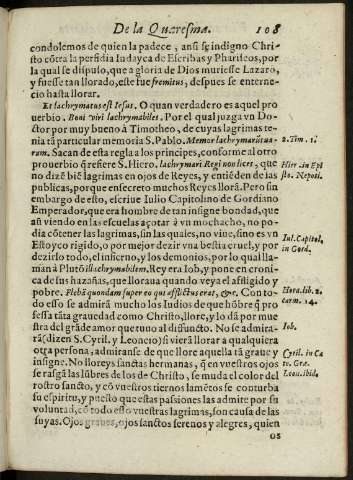 De la Quaresma. 108
condolemos de quien la padece, ansi se indigno Chri-
sto cõtra la perfidia Iudayca de Escribas y Phariseos, por
la qual se dispuso, que a gloria de Dios muriesse Lazaro,
y fuesse tan llorado, este fue fremitus, despues se enterne-
cio hasta llorar.
Et lachrymatus est Iesus. O quan verdadero es aquel pro
uerbio. Boni viri lachrymabiles. Por el qual juzga vn Do-
ctor por muy bueno à Timotheo, de cuyas lagrimas te-
nia tã particular memoria S. Pablo. Memor lachrymarũ tua-
rum. Sacan de esta regla a los principes, conforme al otro
prouerbio q̃ refiere S. Hiero. lachrymari Regi non licet, que
no dizẽ biẽ lagrimas en ojos de Reyes, y entiẽden de las
publicas, porque en secreto muchos Reyes llorã. Pero sin
embargo de esto, escriue Iulio Capitolino de Gordiano
Emperador, que era hombre de tan insigne bondad, que
aũ viendo en las escuelas açotar à vn mochacho, no po-
dia cõtener las lagrimas, sin las quales, no viue, sino es vn
Estoyco rigido, o por mejor dezir vna bestia cruel, y por
dezirlo todo, el infierno, y los demonios, por lo qual lla-
man à Plutõ illachrymabilem. Rey era Iob, y pone en croni-
ca de sus hazañas, que lloraua quando veya al afligido y
pobre. Flebã quondam super eo qui afflictus erat, &c. Con to-
do esso se admirã mucho los Iudios de que hõbre q̃ pro
fessa tãta grauedad como Christo, llore, y lo dã por mue
stra del grãde amor que tuuo al difuncto. No se admira-
rã (dizen S. Cyril. y Leoncio) si vierã llorar a qualquiera
otra persona, admiranse de que llore aquella tã graue y
insigne. No lloreys sanctas hermanas, q̃ en vuestros ojos
se rasgã las lũbres de los de Christo, se muda el color del
rostro sancto, y cõ vuestros tiernos lamẽtos se conturba
su espiritu, y puesto que estas passiones las admite por su
voluntad, cõ todo esso vuestras lagrimas, son causa de las
suyas. Ojos graues, ojos sanctos serenos y alegres, quien
os
2. Tim. 1.
Hier. in Epi
sto. Nepoti.
Iul. Capitol.
in Gord.
Hora. lib. 2.
carm. 14.
Iob.
Cyril. in Ca
te. Græ.
Leon. ibid.